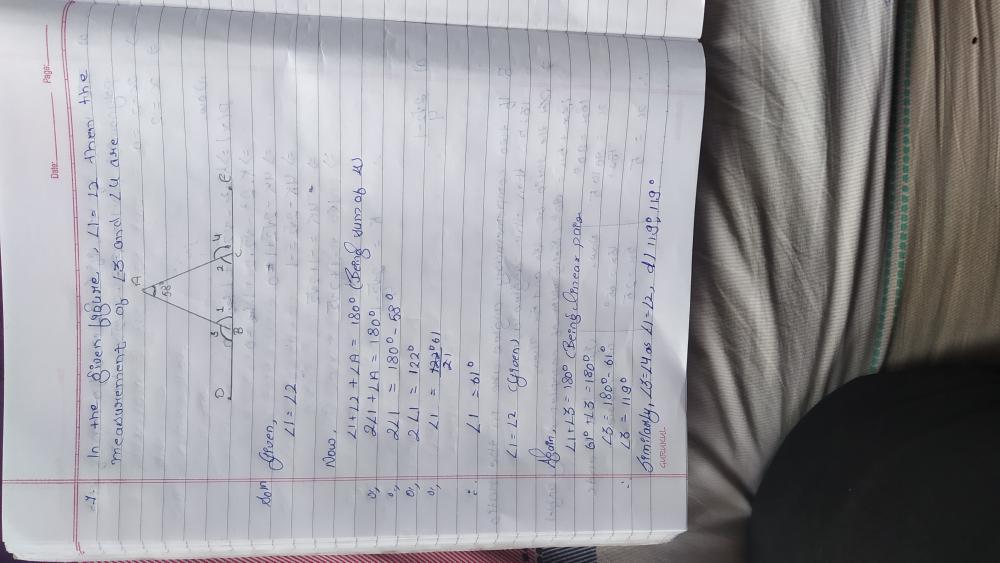 Date: Page:
7. In the given figure, ∠1 = ∠2 then the
measurement of ∠3 and ∠4 are
A
58°
3 1 2 4
D B C E
Soln
Given,
∠1 = ∠2
Now,
∠1 + ∠2 + ∠A = 180° (Being sum of
or, 2∠1 + ∠A = 180°
or, 2∠1 = 180° - 58°
or, 2∠1 = 122°
or, ∠1 = 122° 61
21
∴ ∠1 = 61°
∠1 = ∠2 (Given)
Again,
∠1 + ∠3 = 180° (Being linear pair
61° + ∠3 = 180°
∠3 = 180° - 61°
∴ ∠3 = 119°
Similarly, ∠3 = ∠4 as ∠1 = ∠2, d) 119°, 119°
GURUKUL